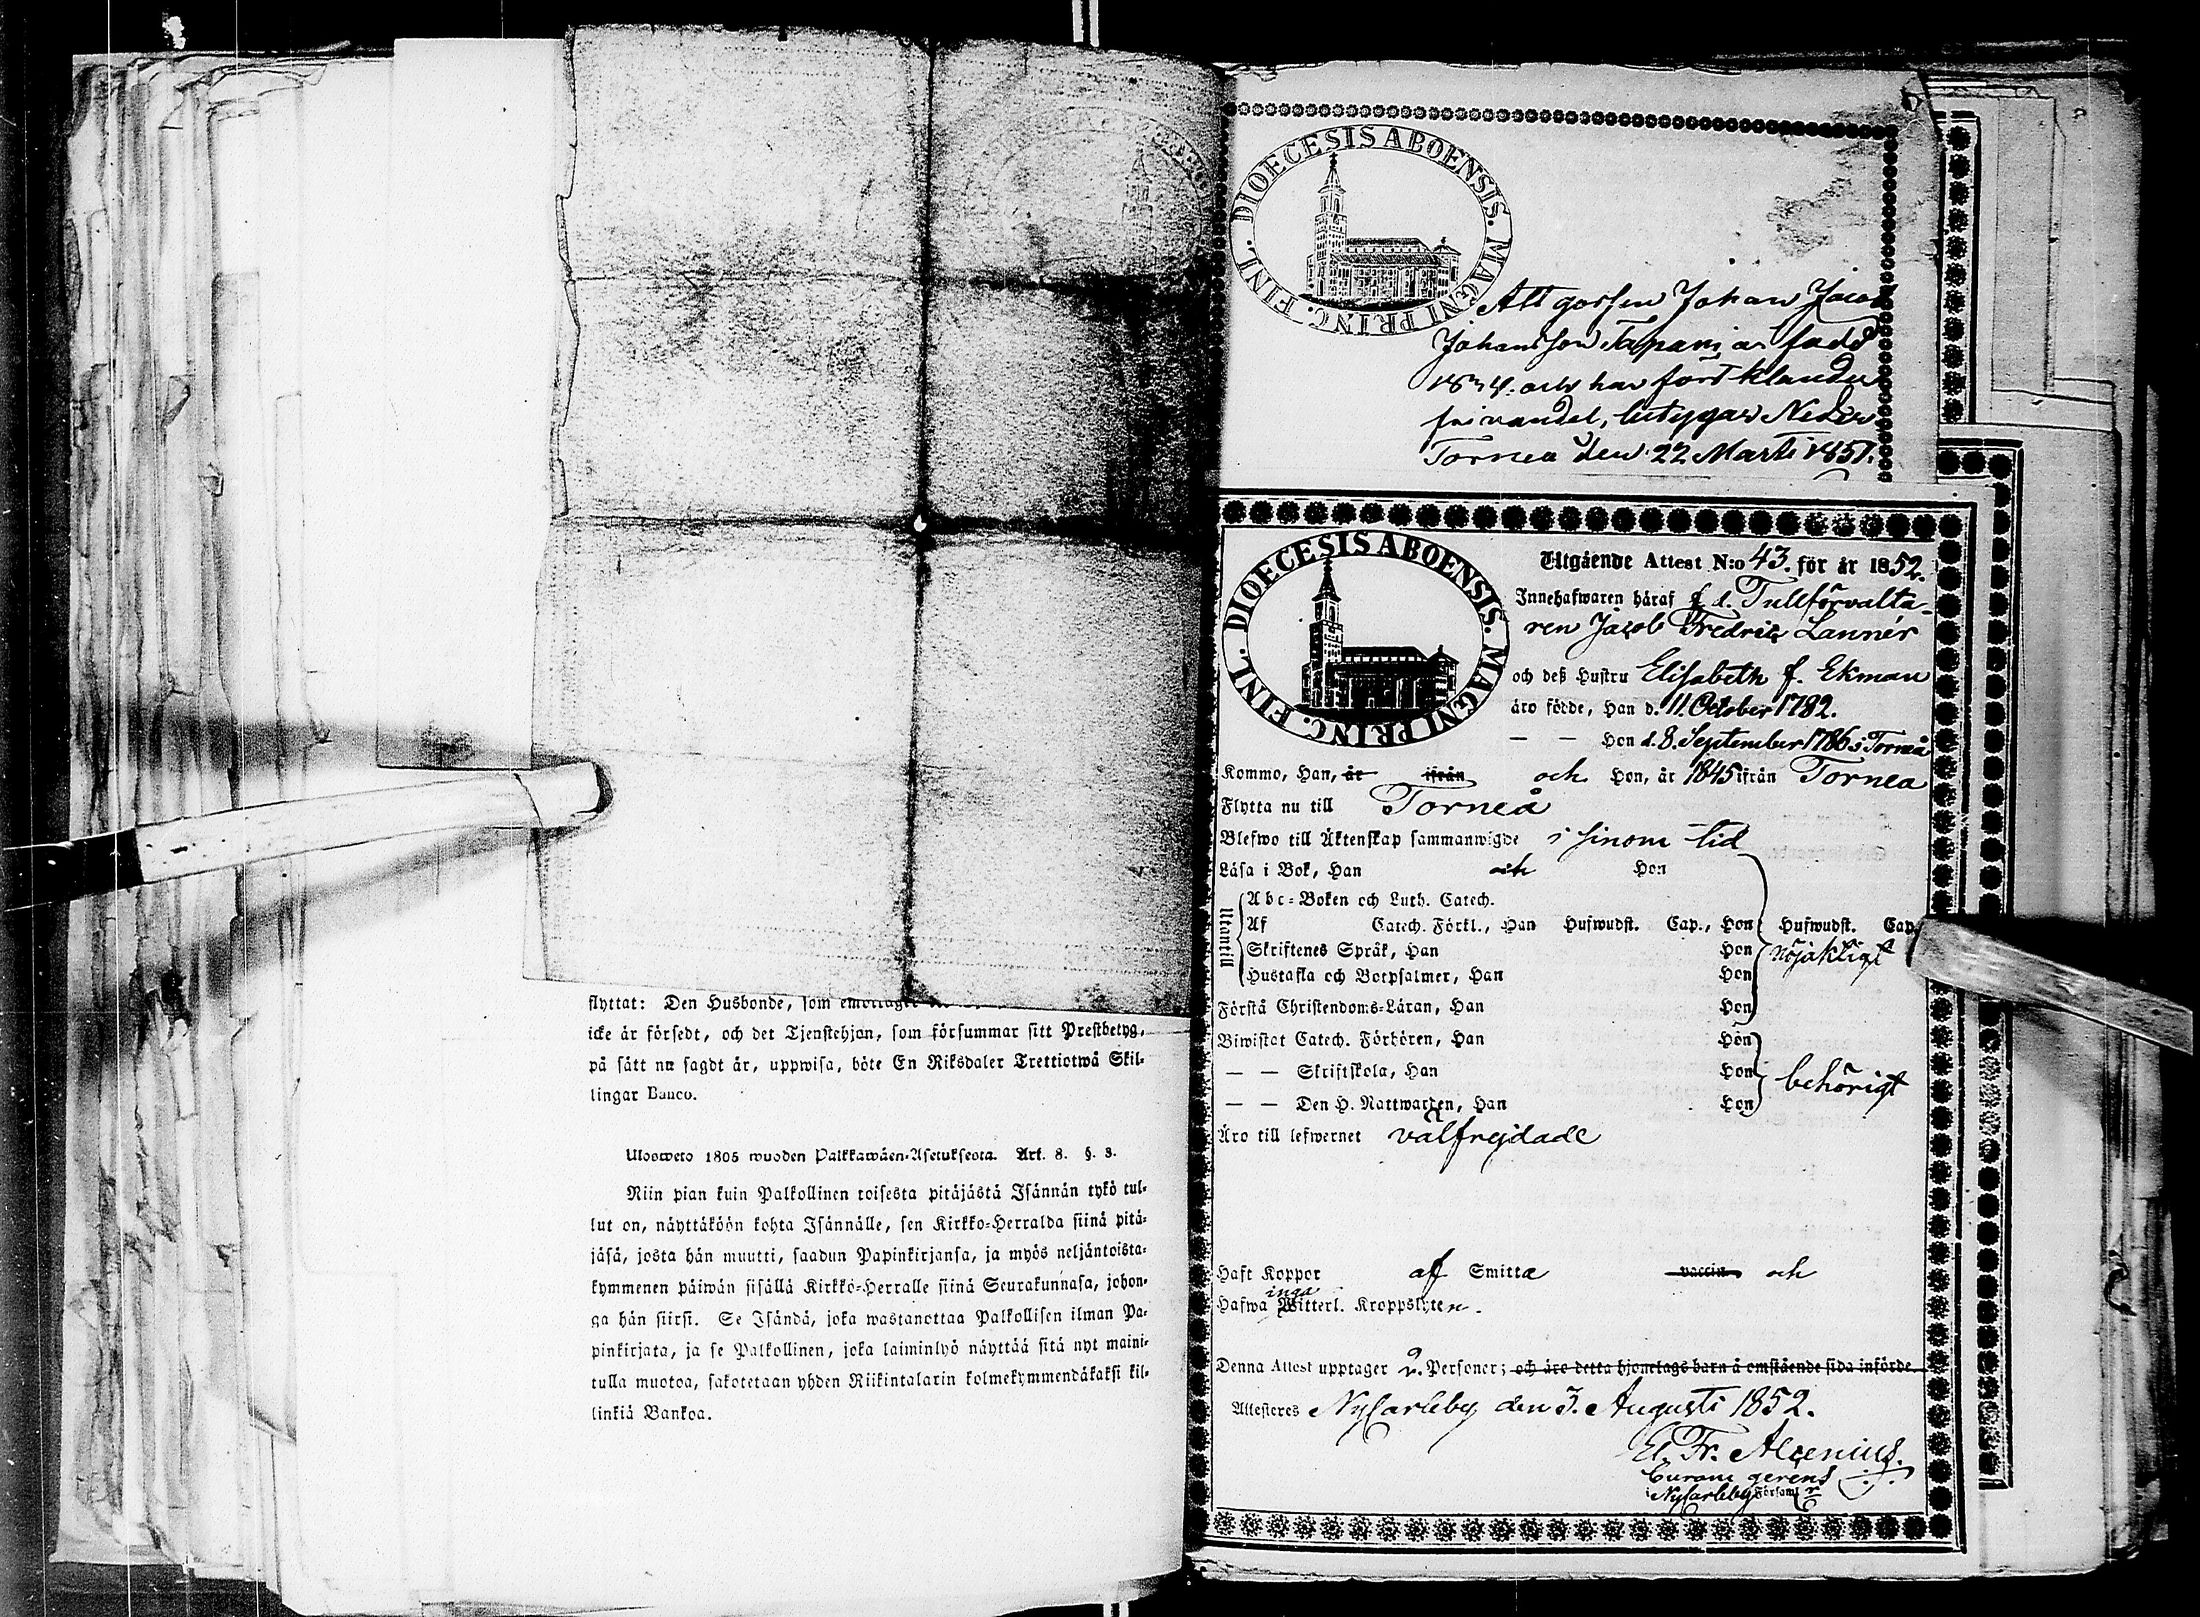 flyttat: Den Husbonde, som emottager
icke är försedt, och det Tjenstehjon, som försummar sitt Prestbetyg,
på sätt nu sagdt är, uppwisa, böte En Riksdaler Trettiotwå Skil-
lingar Banco.
Ulosweto 1805 wuoden Palkkawäen-Asetuksesta. Art. 8. §. 3.
Niin pian kuin Palkollinen toisesta pitäjästä Isännän tykö tul-
lut on, näyttäköön kohta Isännälle, sen Kirkko-Herralda siinä pitä-
jäsä, josta hän muutti, saadun Papinkirjansa, ja myös neljäntoista-
kymmenen päiwän sisällä Kirkko-Herralle siinä Seurakunnasa, johon-
ga hän siirsi. Se Isändä, joka wastanottaa Palkollisen ilman Pa-
pinkirjata, ja se Palkollinen, joka laiminlyö näyttää sitä nyt maini-
tulla muotoa, sakotetaan yhden Riikintalarin kolmekymmendäkaksi kil-
linkiä Bankoa.
DIOECESIS ABOENSIS. MAGNI PRINC. FINL.
Att gossen Johan Jacob
Johansson Tapani är född
1834. och har fört klander
fri vandel, betygar Neder
Torneå den 22 Marti 1851.
DIOECESIS ABOENSIS. MAGNI PRINC. FINL.
Utgående Attest N:o 43. för år 1852.
Innehafwaren häraf f. d. Tullförvalta-
ren Jacob Fredric Lannér
och deß Hustru Elisabeth f. Ekman
äro födde, Han d. 11. October 1782.
— — Hon d. 8. September 1786 i Torneå
Kommo, Han, år ifrån och Hon, år 1845 ifrån Torneå
Flytta nu till Torneå
Blefwo till Äktenskap sammanwigde i sinom tid
Läsa i Bok, Han och Hon
Utantill
Abc-Boken och Luth. Catech.
Af Catech. Förkl., Han Hufwudst. Cap., Hon Hufwudst. Cap.
Skriftenes Språk, Han Hon nöjaktigt
Hustafla och Botpsalmer, Han Hon
Förstå Christendoms-Läran, Han Hon
Biwistat Catech. Förhören, Han Hon
— — Skriftskola, Han Hon behörigt
— — Den H. Nattwarden, Han Hon
Äro till lefwernet välfrejdade
Haft Koppor af Smitta vaccin och
Hafwa inga Witterl. Kroppslyten.
Denna Attest upptager 2. Personer; och äro detta hjonelags barn å omstående sida införde
Attesteres Nycarleby den 3. Augusti 1852.
El. Fr. Alcenius.
Curam gerens
i Nycarleby Församl:r